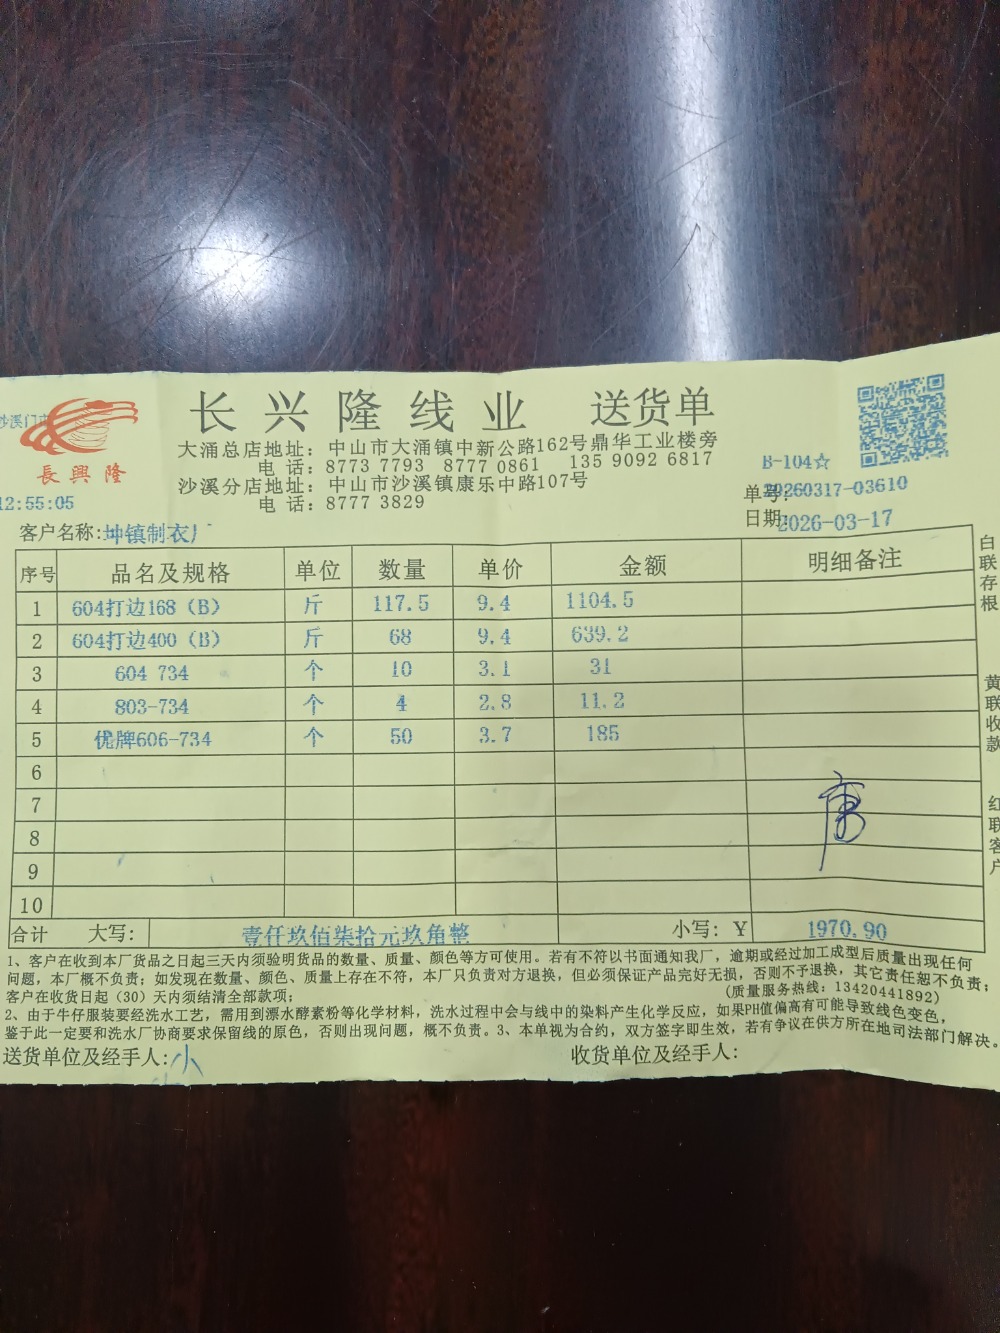 沙溪门市
長興隆
长兴隆线业 送货单
大涌总店地址：中山市大涌镇中新公路162号鼎华工业楼旁
电 话：8773 7793 8777 0861 135 9092 6817
沙溪分店地址：中山市沙溪镇康乐中路107号
电 话：8777 3829
B-104☆
12:55:05
单号：20260317-03610
日期：2026-03-17
客户名称：坤镇制衣厂
序号 品名及规格 单位 数量 单价 金额 明细备注
1 604打边168（B） 斤 117.5 9.4 1104.5
2 604打边400（B） 斤 68 9.4 639.2
3 604 734 个 10 3.1 31
4 803-734 个 4 2.8 11.2
5 优牌606-734 个 50 3.7 185
6
7
8
9
10
合计 大写： 壹仟玖佰柒拾元玖角整 小写：Y 1970.90
白联存根
黄联收款
红联客户
1、客户在收到本厂货品之日起三天内须验明货品的数量、质量、颜色等方可使用。若有不符以书面通知我厂，逾期或经过加工成型后质量出现任何
问题，本厂概不负责；如发现在数量、颜色、质量上存在不符，本厂只负责对方退换，但必须保证产品完好无损，否则不予退换，其它责任恕不负责；
客户在收货日起（30）天内须结清全部款项； （质量服务热线：13420441892）
2、由于牛仔服装要经洗水工艺，需用到漂水酵素粉等化学材料，洗水过程中会与线中的染料产生化学反应，如果PH值偏高有可能导致线色变色，
鉴于此一定要和洗水厂协商要求保留线的原色，否则出现问题，概不负责。3、本单视为合约，双方签字即生效，若有争议在供方所在地司法部门解决。
送货单位及经手人：小 收货单位及经手人：